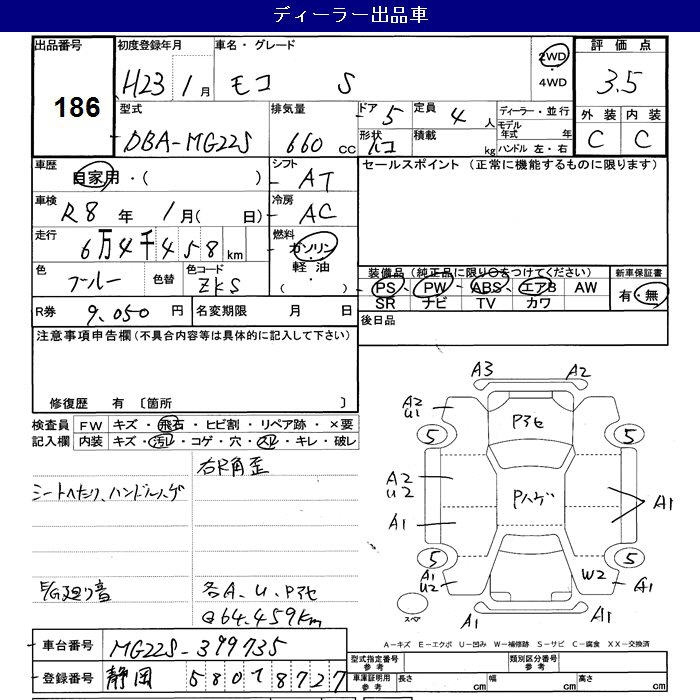 ディーラー出品車
出品番号
186
初度登録年月
H23 1月
車名・グレード
モコ S
2WD
・
4WD
評価点
3.5
外装 内装
C C
型式
DBA-MG22S
排気量
660 cc
ドア 5
定員 4 人
形状
積載 kg
ディーラー・並行
モデル年式 年
ハンドル 左・右
車歴
自家用・( )
シフト
AT
セールスポイント (正常に機能するものに限ります)
車検
R8 年 1月( 日)
冷房
AC
走行
6万4千458km
燃料
ガソリン
・
軽油
・
( )
色
ブルー
色替
色コード
ZKS
装備品(純正品に限り○をつけてください)
PS PW ABS エアB AW
SR ナビ TV カワ
新車保証書
有・無
R券 9,050 円
名変期限 月 日
後日品
注意事項申告欄(不具合内容等は具体的に記入して下さい)
修復歴 有 〔箇所 〕
検査員記入欄
FW キズ・飛石・ヒビ割・リペア跡・×要
内装 キズ・汚レ・コゲ・穴・スレ・キレ・破レ
右R角歪
シートヘたり、ハンドルハゲ
E/G廻り音
各A、U、Pアセ
@64.459km
A3 A2
A2
U1
Pアセ
5 5
A2
U2
Pハゲ
A1
A1
5 5
A1
U2
W2
A1
スペア
A1 A1
A-キズ E-エクボ U-凹み W-補修跡 S-サビ C-腐食 XX-交換済
車台番号 MG22S-399735
登録番号 静岡 580 る 8727
型式指定番号 参考
類別区分番号 参考
車庫証明用 参考
長さ cm
幅 cm
高さ cm